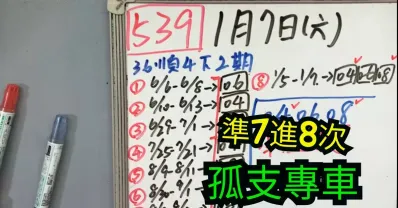 539 1月7日(六)
36順4下2期
① 6/6-6/8→06
② 6/10-6/13→04
③ 6/29-7/1→
④ 7/15-7/21→
⑤ 8/9-8/11→
⑥ 8/30-9/1→
⑧ 1/5-1/7→04 06 08
04 06 08
準7進8次
孤支專車